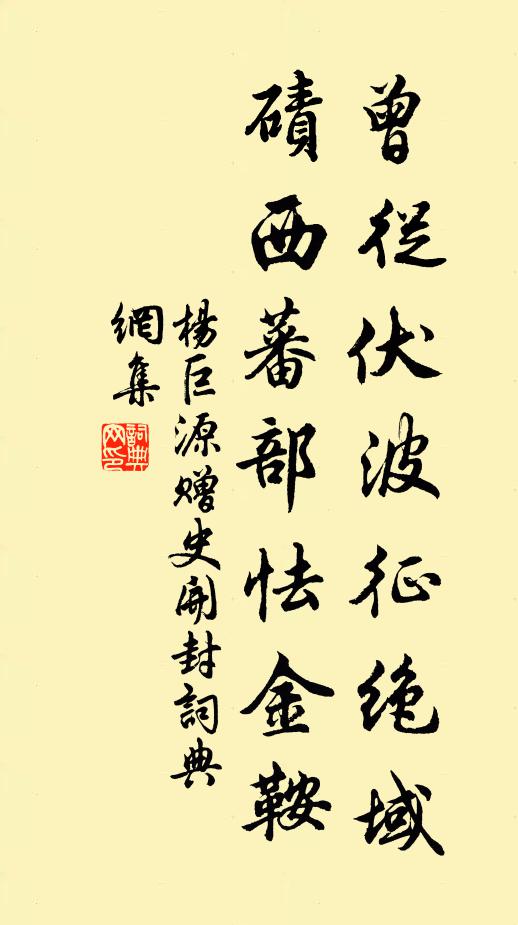 曾從伏波征絶域
磧西蕃部怯金鞍
楊巨源贈史開封詞典
網集
詞典
网印